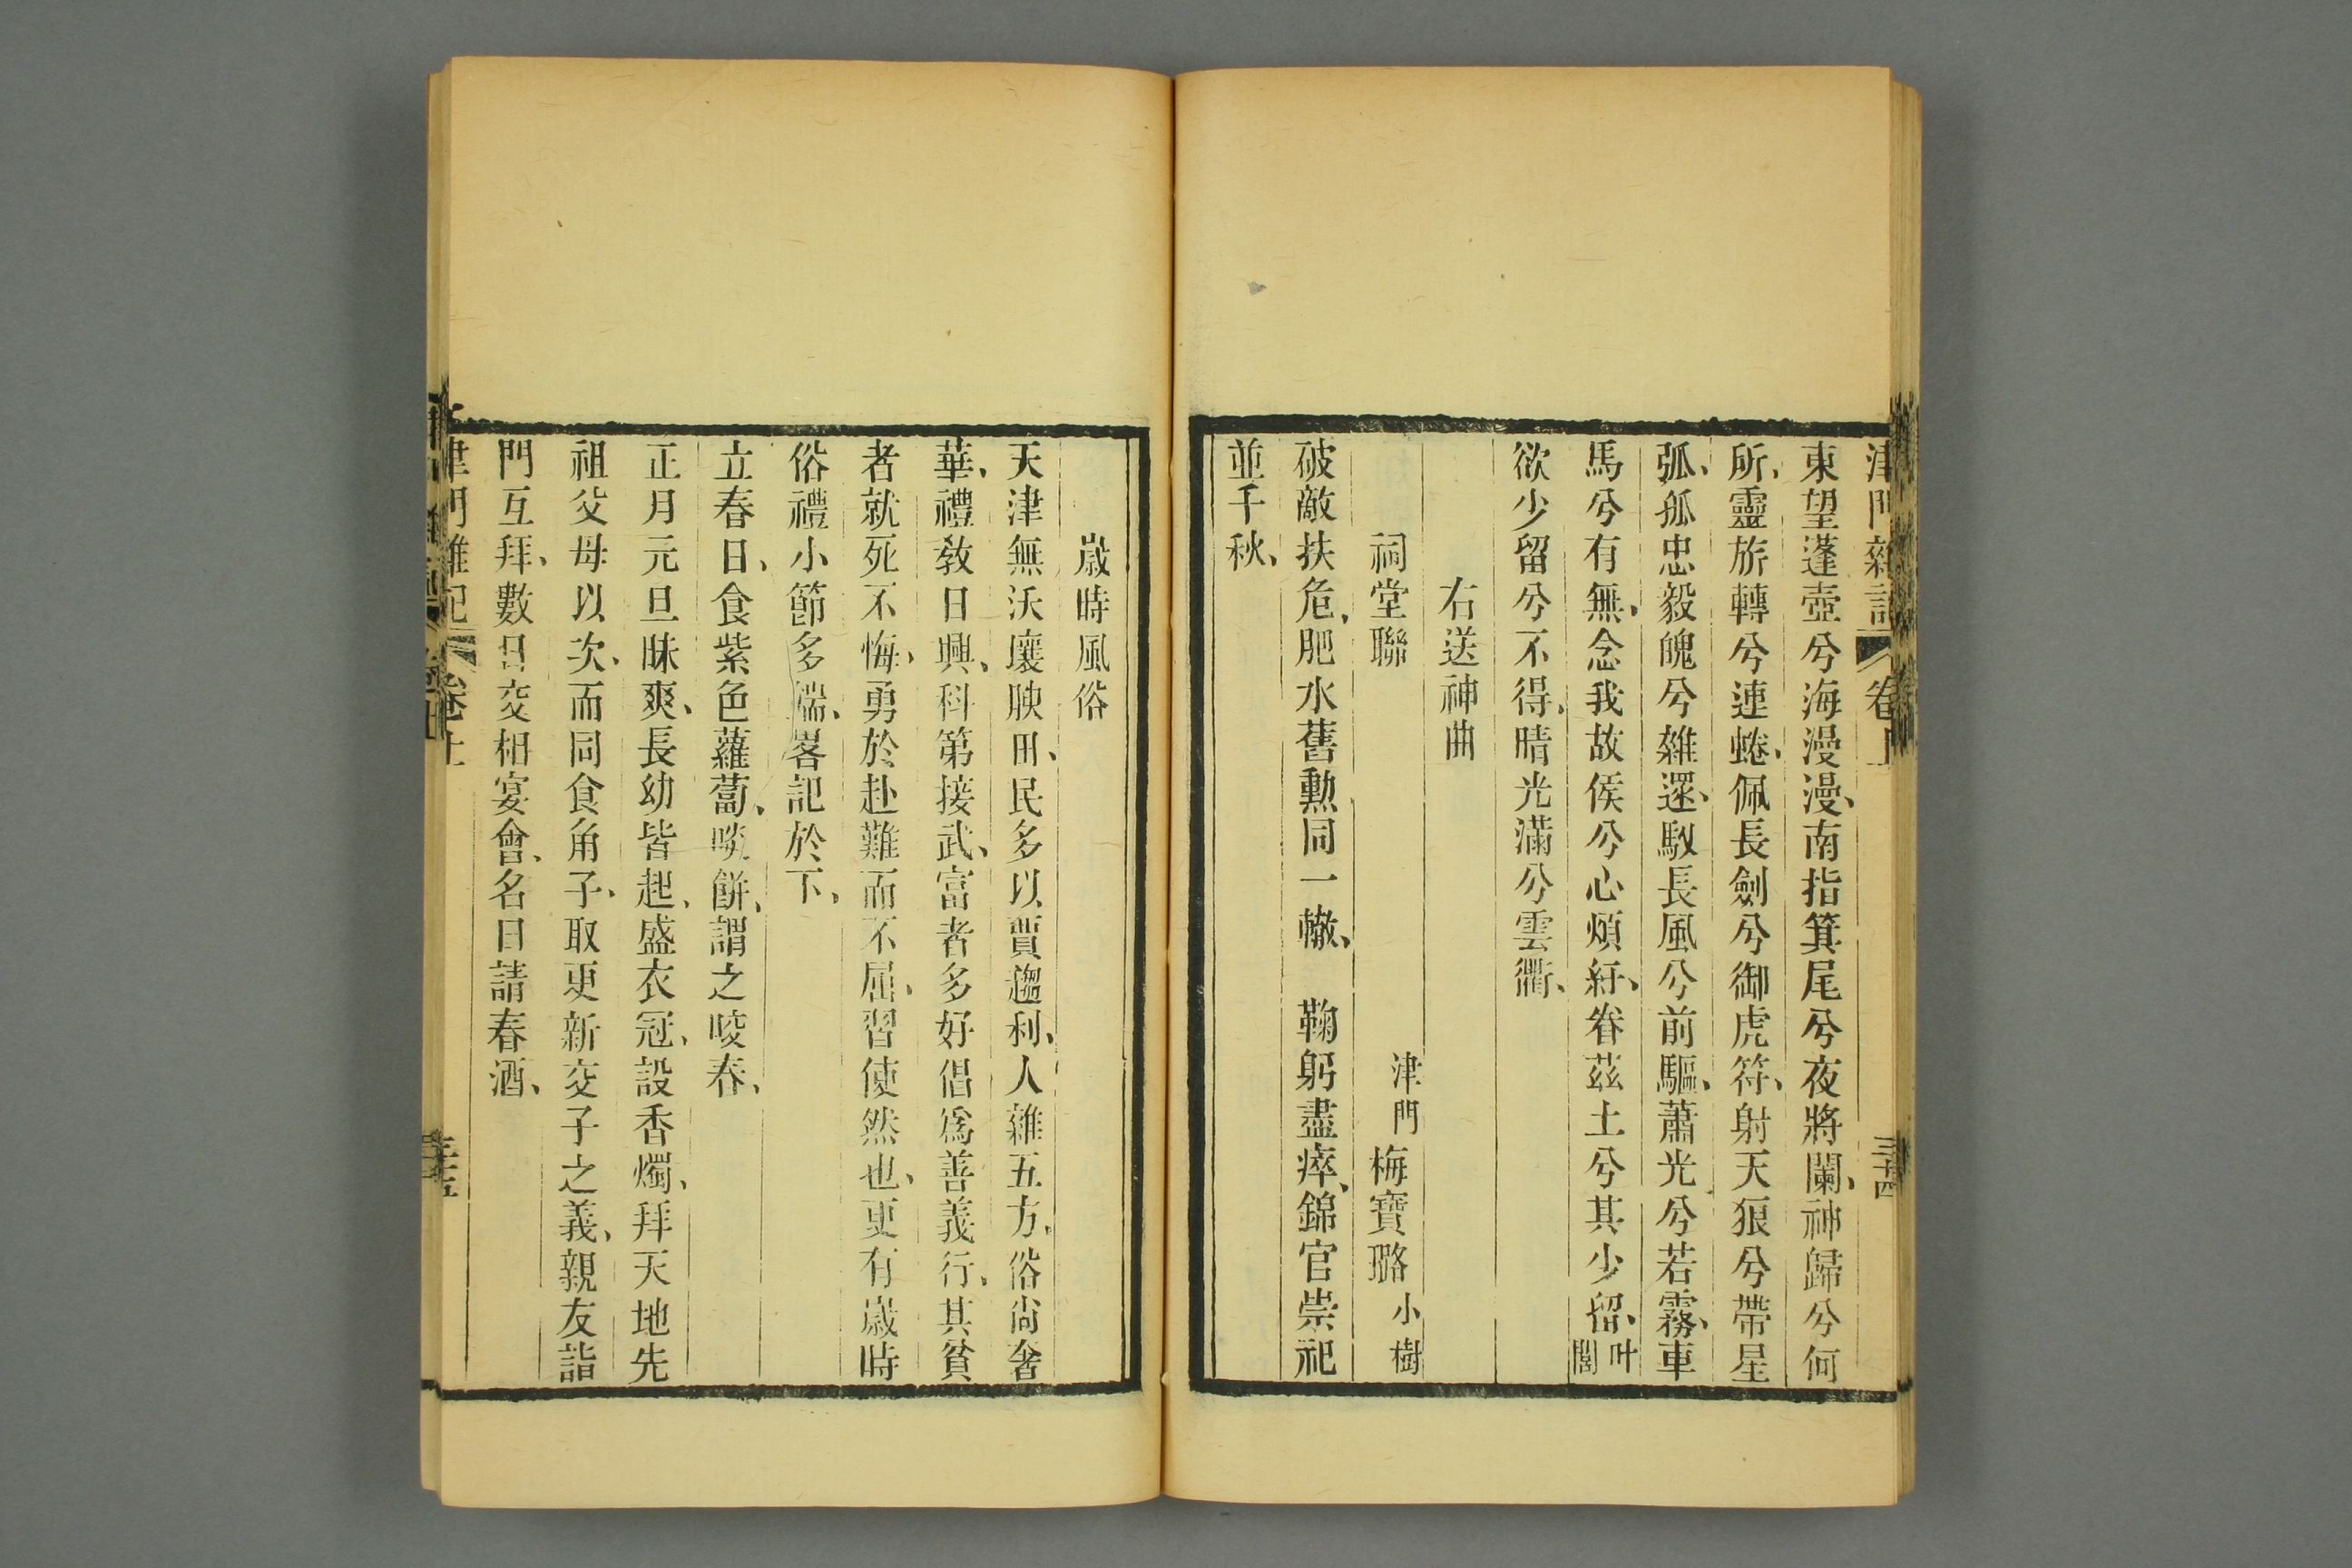 津門雜記 卷上 三十四
東望蓬壺兮海漫漫、南指箕尾兮夜將闌、神歸兮何
所、靈旂轉兮連蜷、佩長劍兮御虎符、射天狼兮帶星
弧、孤忠毅魄兮雜遝、馭長風兮前驅、蕭光兮若霧、車
馬兮有無、念我故侯兮心煩紆、眷茲土兮其少留、叶閭
欲少留兮不得、晴光滿兮雲衢、
右送神曲
祠堂聯 津門 梅寶璐 小樹
破敵扶危、肥水舊勳同一轍、 鞠躬盡瘁、錦官崇祀
並千秋、
歲時風俗
天津無沃壤腴田、民多以賈趨利、人雜五方、俗尚奢
華、禮教日興、科第接武、富者多好倡為善義行、其貧
者就死不悔、勇於赴難而不屈、習使然也、更有歲時
俗禮小節多端、畧記於下、
立春日、食紫色蘿蔔、啖餅、謂之咬春、
正月元旦昧爽、長幼皆起、盛衣冠、設香燭、拜天地先
祖父母以次、而同食角子、取更新交子之義、親友詣
門互拜、數日交相宴會、名曰請春酒、
津門雜記 卷上 三十五